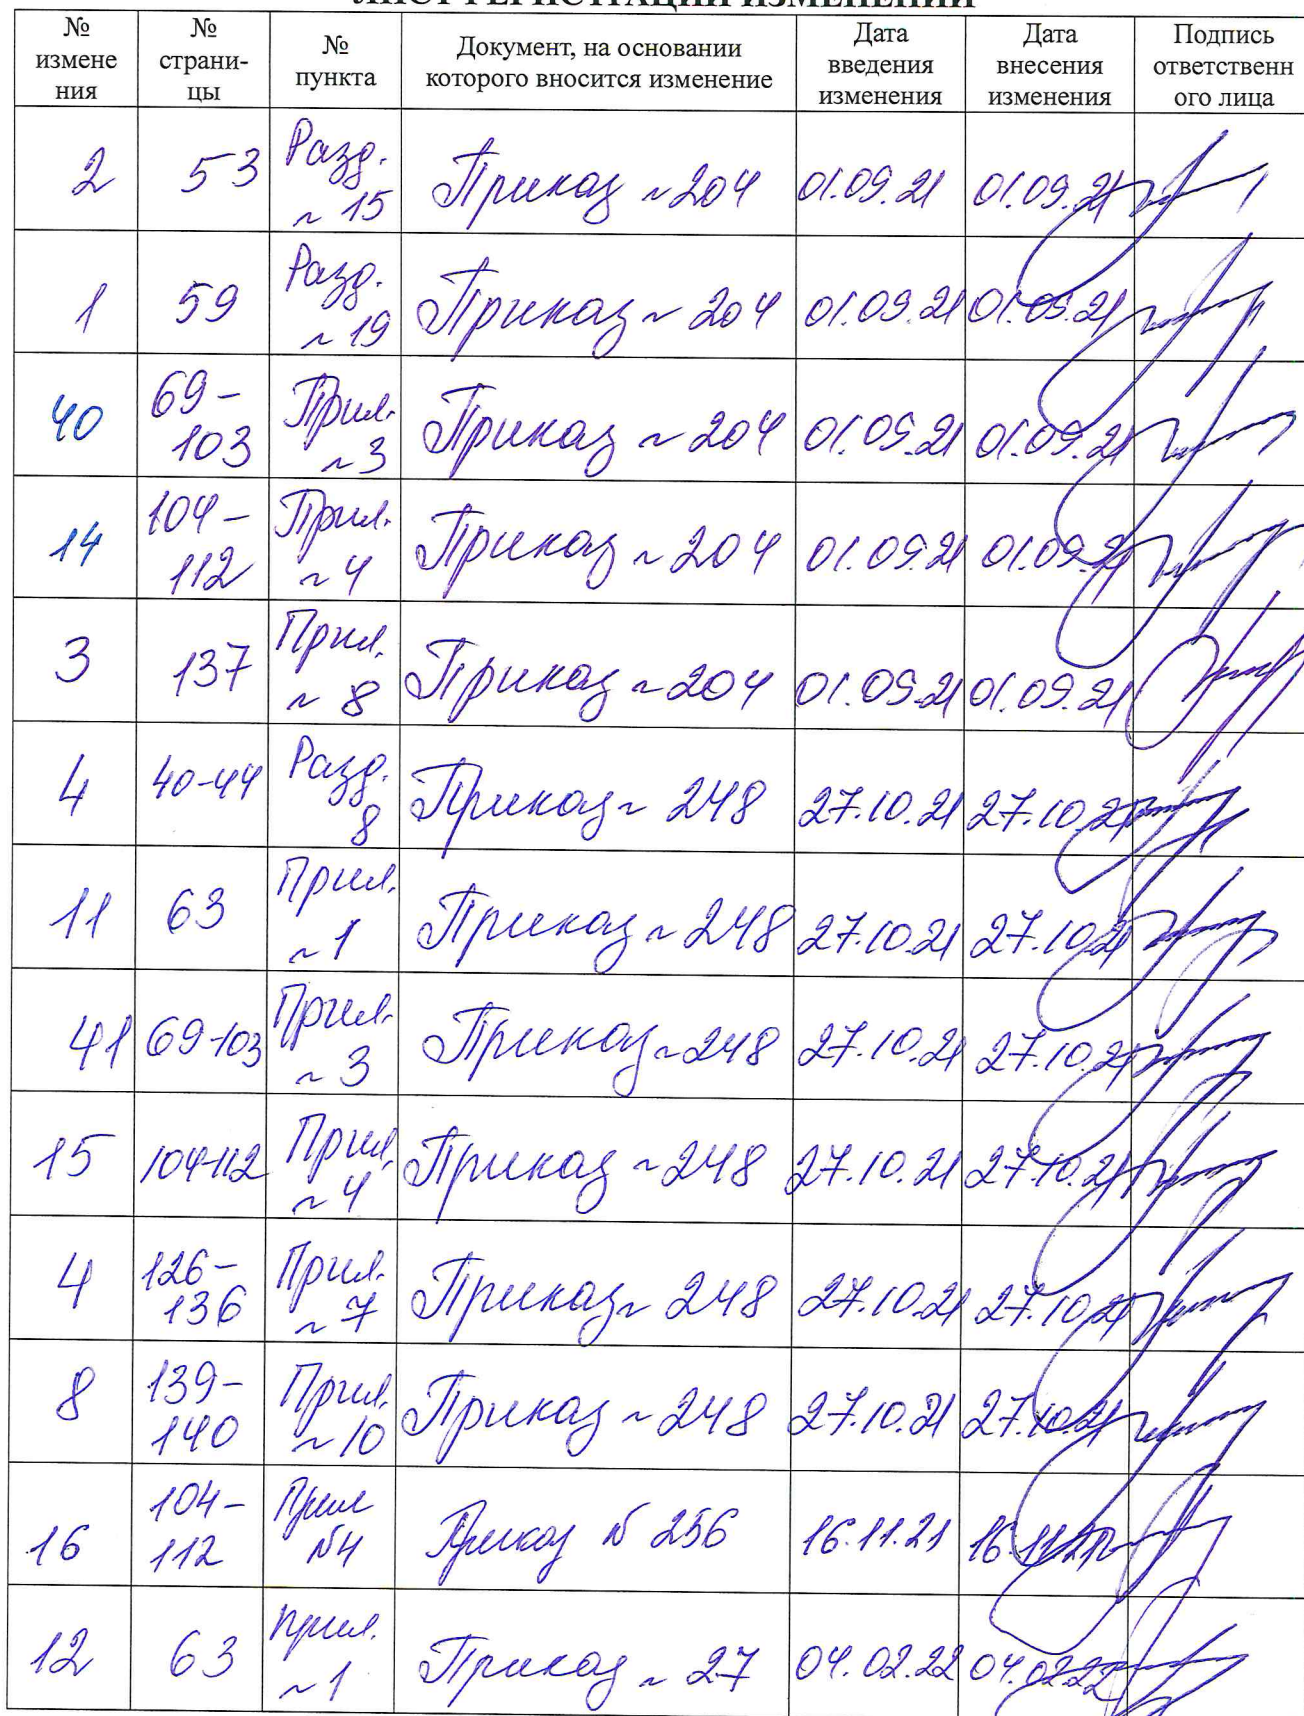 ЛИСТ РЕГИСТРАЦИИ ИЗМЕНЕНИЙ
№ измене ния | № страни- цы | № пункта | Документ, на основании которого вносится изменение | Дата введения изменения | Дата внесения изменения | Подпись ответственн ого лица
2 | 53 | Разд. ~ 15 | Приказ ~ 204 | 01.09.21 | 01.09.21
1 | 59 | Разд. ~ 19 | Приказ ~ 204 | 01.09.21 | 01.09.21
40 | 69-103 | Прил. ~ 3 | Приказ ~ 204 | 01.09.21 | 01.09.21
14 | 104-112 | Прил. ~ 4 | Приказ ~ 204 | 01.09.21 | 01.09.21
3 | 137 | Прил. ~ 8 | Приказ ~ 204 | 01.09.21 | 01.09.21
4 | 40-44 | Разд. 8 | Приказ ~ 248 | 27.10.21 | 27.10.21
11 | 63 | Прил. ~ 1 | Приказ ~ 248 | 27.10.21 | 27.10.21
41 | 69-103 | Прил. ~ 3 | Приказ ~ 248 | 27.10.21 | 27.10.21
15 | 104-112 | Прил. ~ 4 | Приказ ~ 248 | 27.10.21 | 27.10.21
4 | 126-136 | Прил. ~ 7 | Приказ ~ 248 | 27.10.21 | 27.10.21
8 | 139-140 | Прил. ~ 10 | Приказ ~ 248 | 27.10.21 | 27.10.21
16 | 104-112 | Прил №4 | Приказ № 256 | 16.11.21 | 16.11.21
12 | 63 | Прил. ~ 1 | Приказ ~ 27 | 04.02.22 | 04.02.22